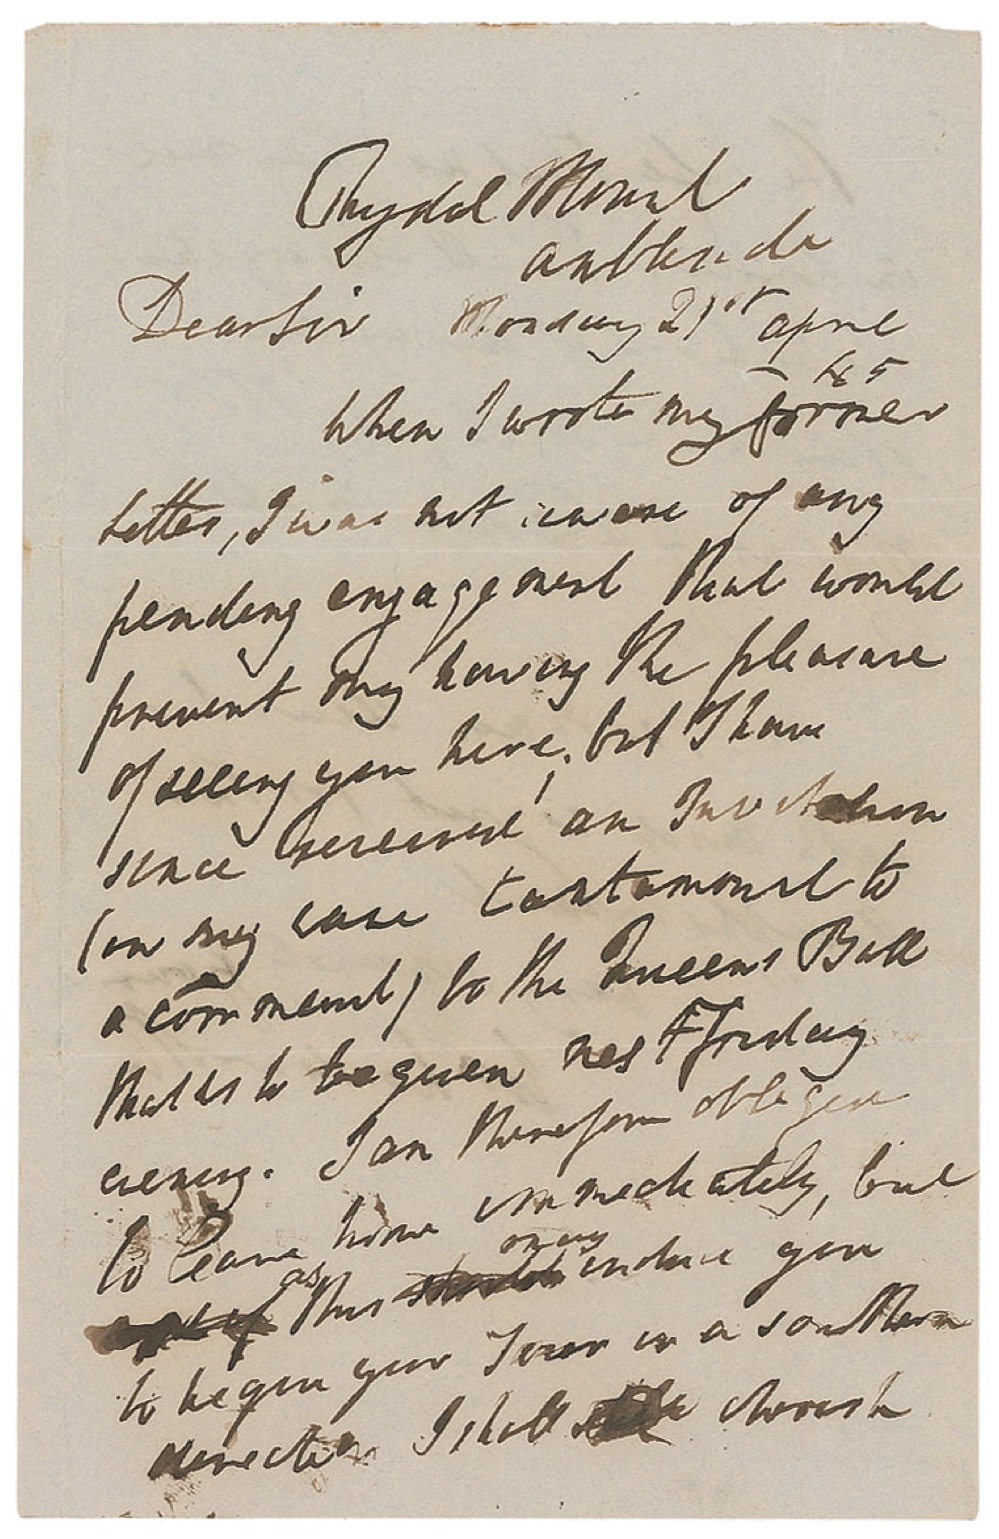 Rydal Mount
Ambleside
Dear Sir Monday 21st April
45
When I wrote my former
letter, I was not aware of any
pending engagement that would
prevent my having the pleasure
of seeing you here, but I have
since received an Invitation
(in my case tantamount to
a command) to the Queens Ball
that is to be given next Friday
evening. I am therefore obliged
to leave home immediately, but
as this may induce you
to begin your Tour in a southern
direction I shall cherish